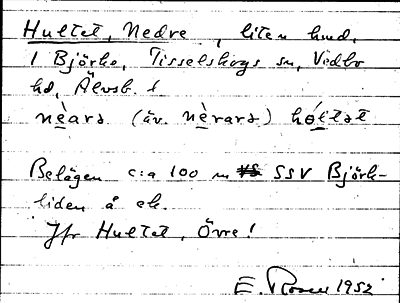 Hultet, Nedre, liten bnd,
i Björke, Tisselskogs sn, Vedbo
hd, Älvsb. l
nèara (äv. nèrara) hóltat
Belägen c:a 100 m SSV Björk-
liden å ek.
Jfr Hultet, Övre!
E. Rosen 1952